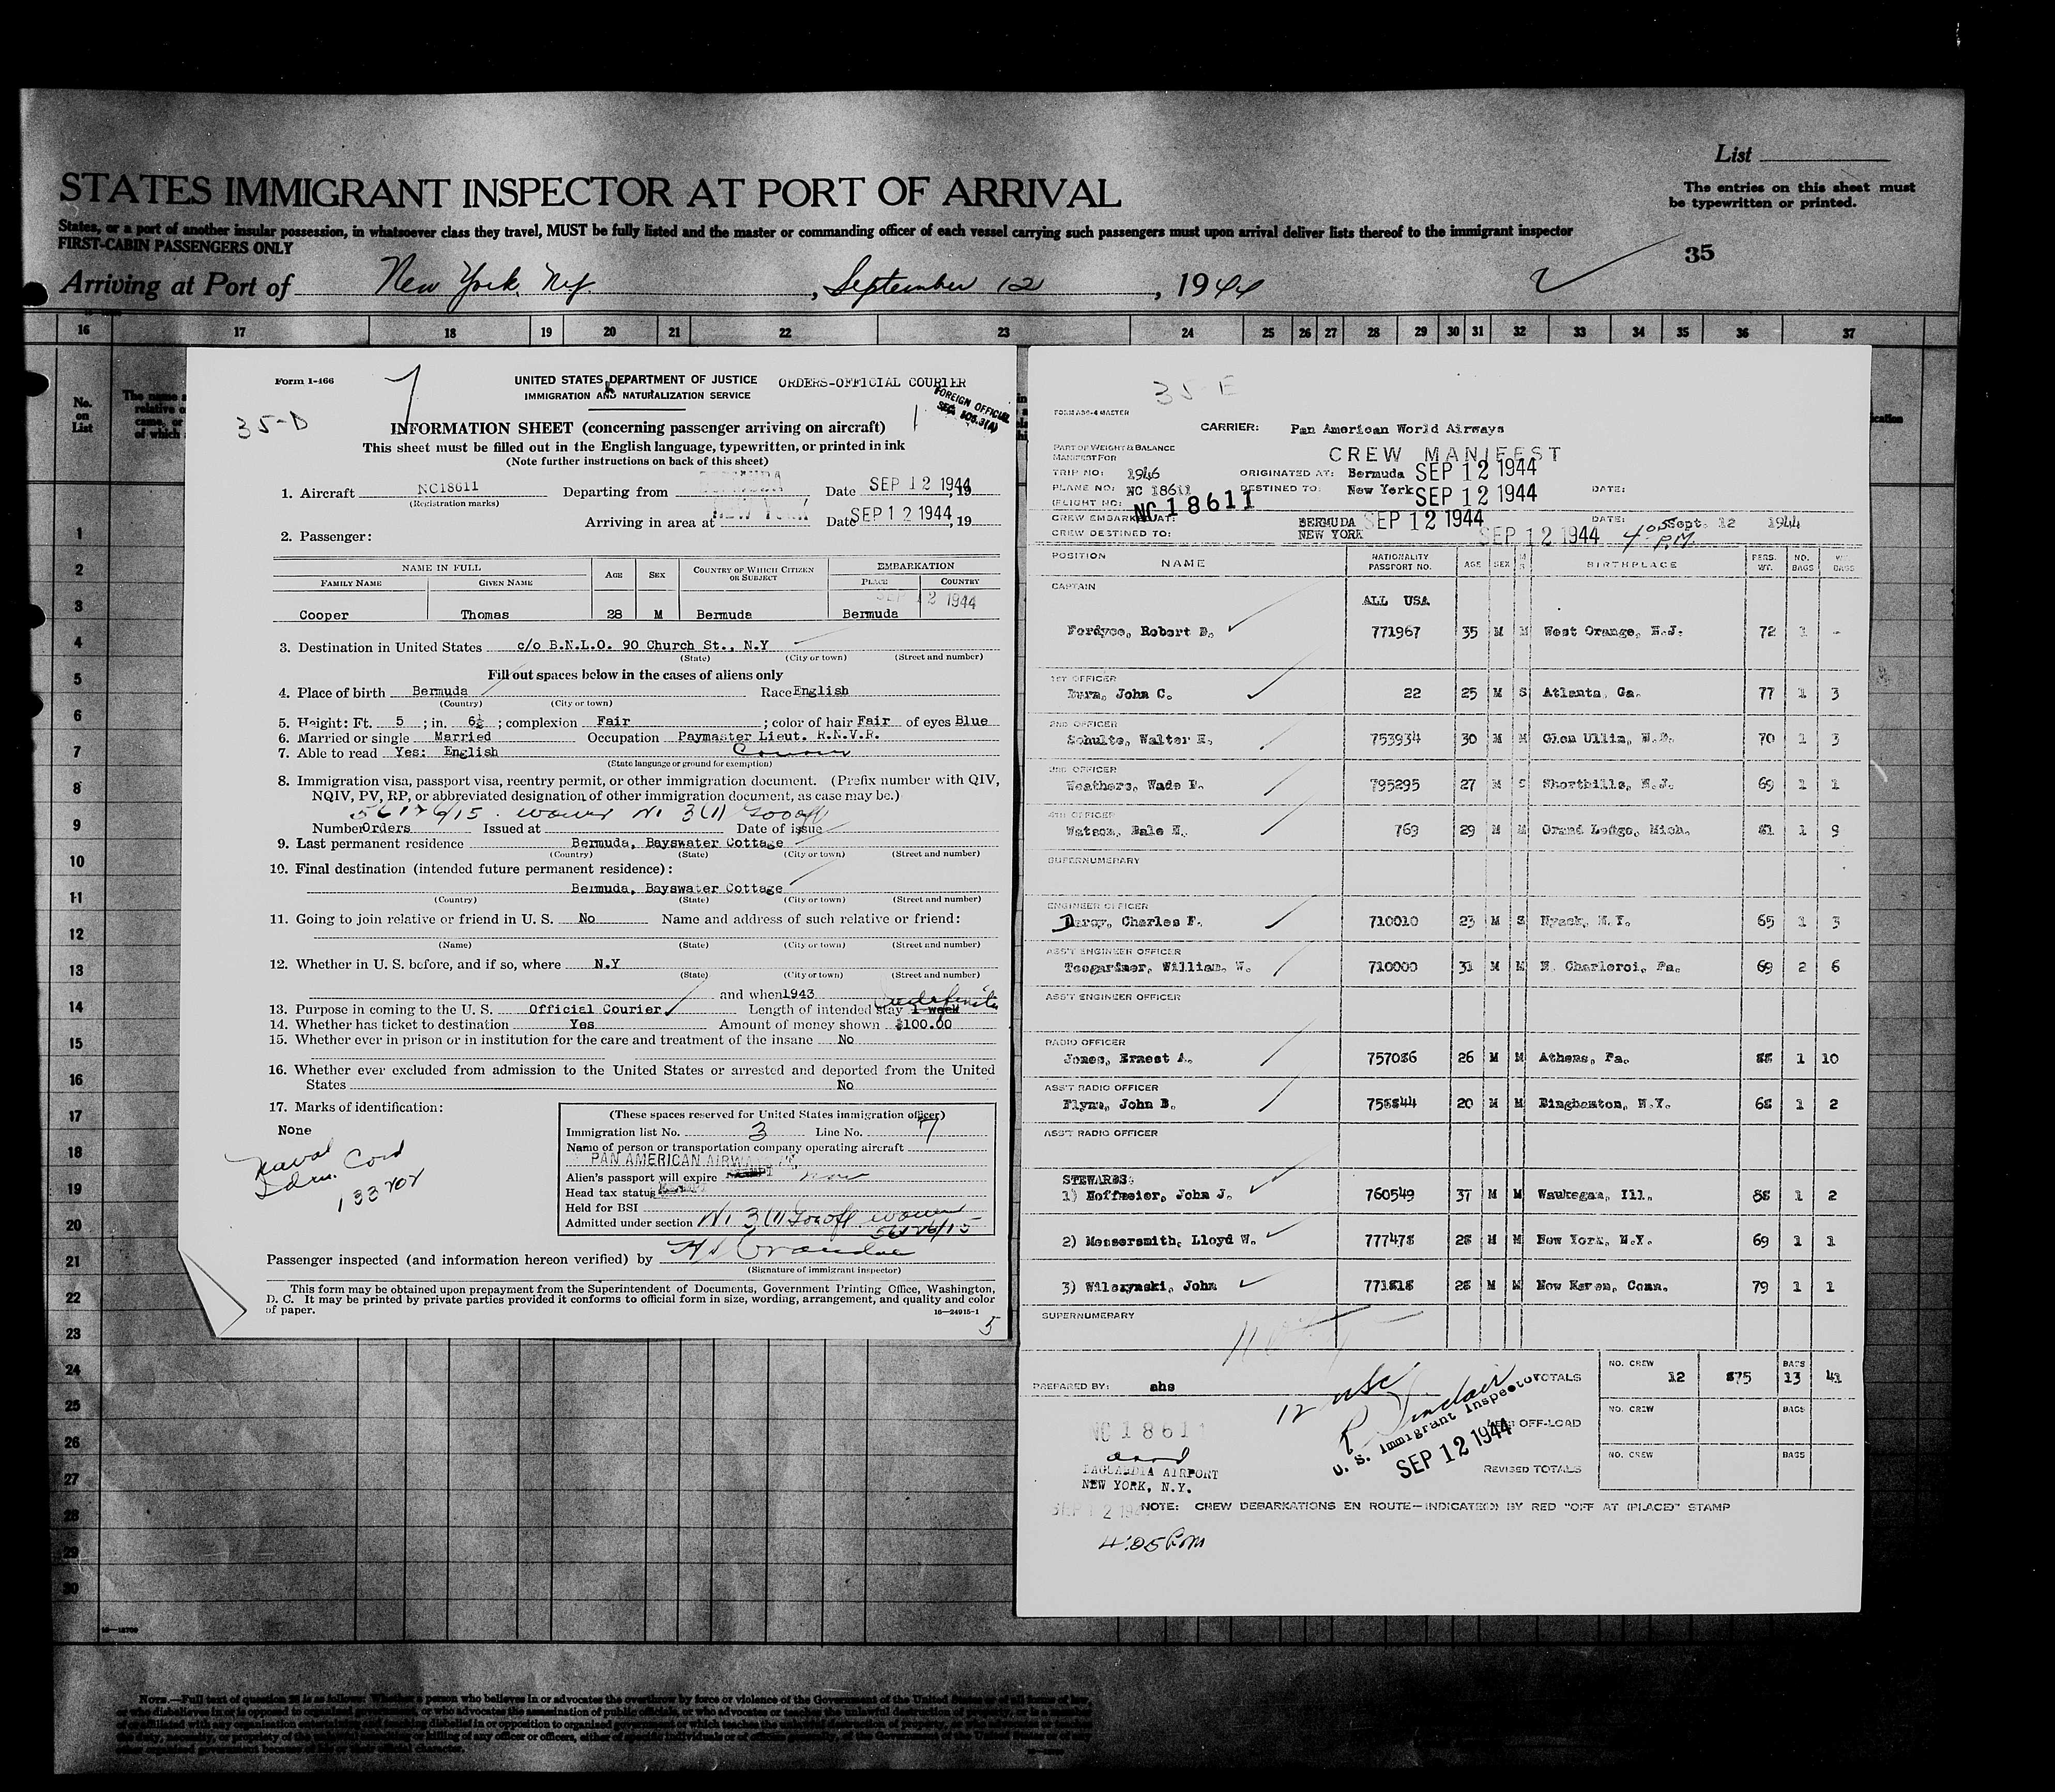 List
STATES IMMIGRANT INSPECTOR AT PORT OF ARRIVAL
The entries on this sheet must
be typewritten or printed.
States, or a port of another insular possession, in whatsoever class they travel, MUST be fully listed and the master or commanding officer of each vessel carrying such passengers must upon arrival deliver lists thereof to the immigrant inspector
FIRST-CABIN PASSENGERS ONLY
35
Arriving at Port of New York, N.Y. , September 12 , 1944
16 17 18 19 20 21 22 23 24 25 26 27 28 29 30 31 32 33 34 35 36 37
No.
on
List
1
2
3
4
5
6
7
8
9
10
11
12
13
14
15
16
17
18
19
20
21
22
23
24
25
26
27
28
29
30
Form I-466
7
35-D
UNITED STATES DEPARTMENT OF JUSTICE
ORDERS-OFFICIAL COURIER
IMMIGRATION AND NATURALIZATION SERVICE
FOREIGN OFFICIAL
INFORMATION SHEET (concerning passenger arriving on aircraft)
This sheet must be filled out in the English language, typewritten, or printed in ink
(Note further instructions on back of this sheet)
1. Aircraft NC18611 Departing from BERMUDA Date SEP 12 1944, 19
(Registration marks)
Arriving in area at NEW YORK Date SEP 12 1944, 19
2. Passenger:
NAME IN FULL AGE SEX COUNTRY OF WHICH CITIZEN OR SUBJECT EMBARKATION
FAMILY NAME GIVEN NAME PLACE COUNTRY
SEP 12 1944
Cooper Thomas 28 M Bermuda Bermuda
3. Destination in United States c/o B.N.L.O. 90 Church St., N.Y
(State) (City or town) (Street and number)
Fill out spaces below in the cases of aliens only
4. Place of birth Bermuda Race English
(Country) (City or town)
5. Height: Ft. 5 ; in. 6½ ; complexion Fair ; color of hair Fair of eyes Blue
6. Married or single Married Occupation Paymaster Lieut. R.N.V.R.
7. Able to read Yes: English
(State language or ground for exemption)
8. Immigration visa, passport visa, reentry permit, or other immigration document. (Prefix number with QIV,
NQIV, PV, RP, or abbreviated designation of other immigration document, as case may be.)
Number Orders Issued at Date of issue
9. Last permanent residence Bermuda, Bayswater Cottage
(Country) (State) (City or town) (Street and number)
10. Final destination (intended future permanent residence):
Bermuda, Bayswater Cottage
(Country) (State) (City or town) (Street and number)
11. Going to join relative or friend in U. S. No Name and address of such relative or friend:
(Name) (State) (City or town) (Street and number)
12. Whether in U. S. before, and if so, where N.Y
(State) (City or town) (Street and number)
and when 1943
13. Purpose in coming to the U. S. Official Courier Length of intended stay 1 week Indefinite
14. Whether has ticket to destination Yes Amount of money shown $100.00
15. Whether ever in prison or in institution for the care and treatment of the insane No
16. Whether ever excluded from admission to the United States or arrested and deported from the United
States No
17. Marks of identification:
None
Naval
Adm. Card
133702
(These spaces reserved for United States immigration officer)
Immigration list No. 3 Line No. 7
Name of person or transportation company operating aircraft
PAN AMERICAN AIRWAYS
Alien's passport will expire
Head tax status
Held for BSI
Admitted under section
Passenger inspected (and information hereon verified) by
(Signature of immigrant inspector)
This form may be obtained upon prepayment from the Superintendent of Documents, Government Printing Office, Washington,
D. C. It may be printed by private parties provided it conforms to official form in size, wording, arrangement, and quality and color
of paper.
16—24915-1
5
35-E
FORM ADG-4 MASTER
CARRIER: Pan American World Airways
PART OF WEIGHT & BALANCE
MANIFEST FOR
CREW MANIFEST
TRIP NO: 1946 ORIGINATED AT: Bermuda SEP 12 1944
PLANE NO: NC 18611 DESTINED TO: New York SEP 12 1944 DATE:
(FLIGHT NO: NC 18611
CREW EMBARKED AT: BERMUDA SEP 12 1944 DATE: Sept. 12 1944
CREW DESTINED TO: NEW YORK SEP 12 1944 4:05 P.M
POSITION NAME NATIONALITY PASSPORT NO. AGE SEX M S BIRTHPLACE PERS. WT. NO. BAGS WT. BAGS
CAPTAIN
ALL USA
Fordyce, Robert D. 771967 35 M M West Orange, N.J. 72 1 -
1ST OFFICER
John C. 22 25 M S Atlanta, Ga. 77 1 3
2ND OFFICER
Schulte, Walter H. 753934 30 M M Glen Ullin, N.D. 70 1 3
3RD OFFICER
Weathers, Wade D. 795295 27 M S Shorthills, N.J. 69 1 1
4TH OFFICER
Watson, Dale H. 769 29 M M Grand Ledge, Mich. 81 1 9
SUPERNUMERARY
ENGINEER OFFICER
Darcy, Charles F. 710010 23 M S Nyack, N.Y. 65 1 3
ASS'T ENGINEER OFFICER
Teegardner, William W. 710000 31 M M N. Charleroi, Pa. 69 2 6
ASS'T ENGINEER OFFICER
RADIO OFFICER
Jones, Ernest A. 757086 26 M M Athens, Pa. 88 1 10
ASS'T RADIO OFFICER
Flynn, John B. 20 M M Binghamton, N.Y. 68 1 2
ASS'T RADIO OFFICER
STEWARDS:
1) Hoffmeier, John J. 760549 37 M M Waukegan, Ill. 88 1 2
2) Messersmith, Lloyd W. 777478 28 M M New York, N.Y. 69 1 1
3) Wilczynski, John 771818 28 M M New Haven, Conn. 79 1 1
SUPERNUMERARY
PREPARED BY: ahs
12 USC
R. Sinclair
U. S. Immigrant Inspector
SEP 12 1944
TOTALS NO. CREW 12 875 BAGS 13 41
OFF-LOAD NO. CREW BAGS
REVISED TOTALS NO. CREW BAGS
NC 18611
LAGUARDIA AIRPORT
NEW YORK, N.Y.
SEP 12 1944
NOTE: CREW DEBARKATIONS EN ROUTE—INDICATE(D) BY RED "OFF AT (PLACE)" STAMP
4:05 P.M